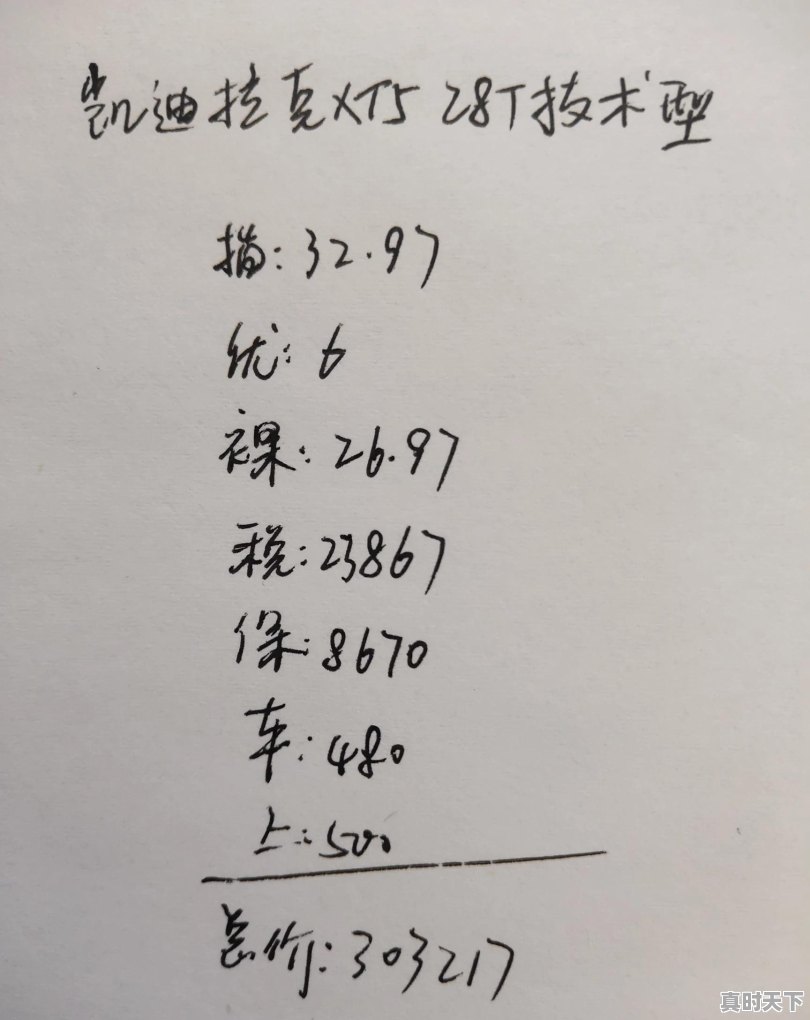 凯迪拉克XT5 28T技术型
指: 32.97
优: 6
裸: 26.97
税: 23867
保: 8670
车: 480
上: 500
总价: 303217
真时天下